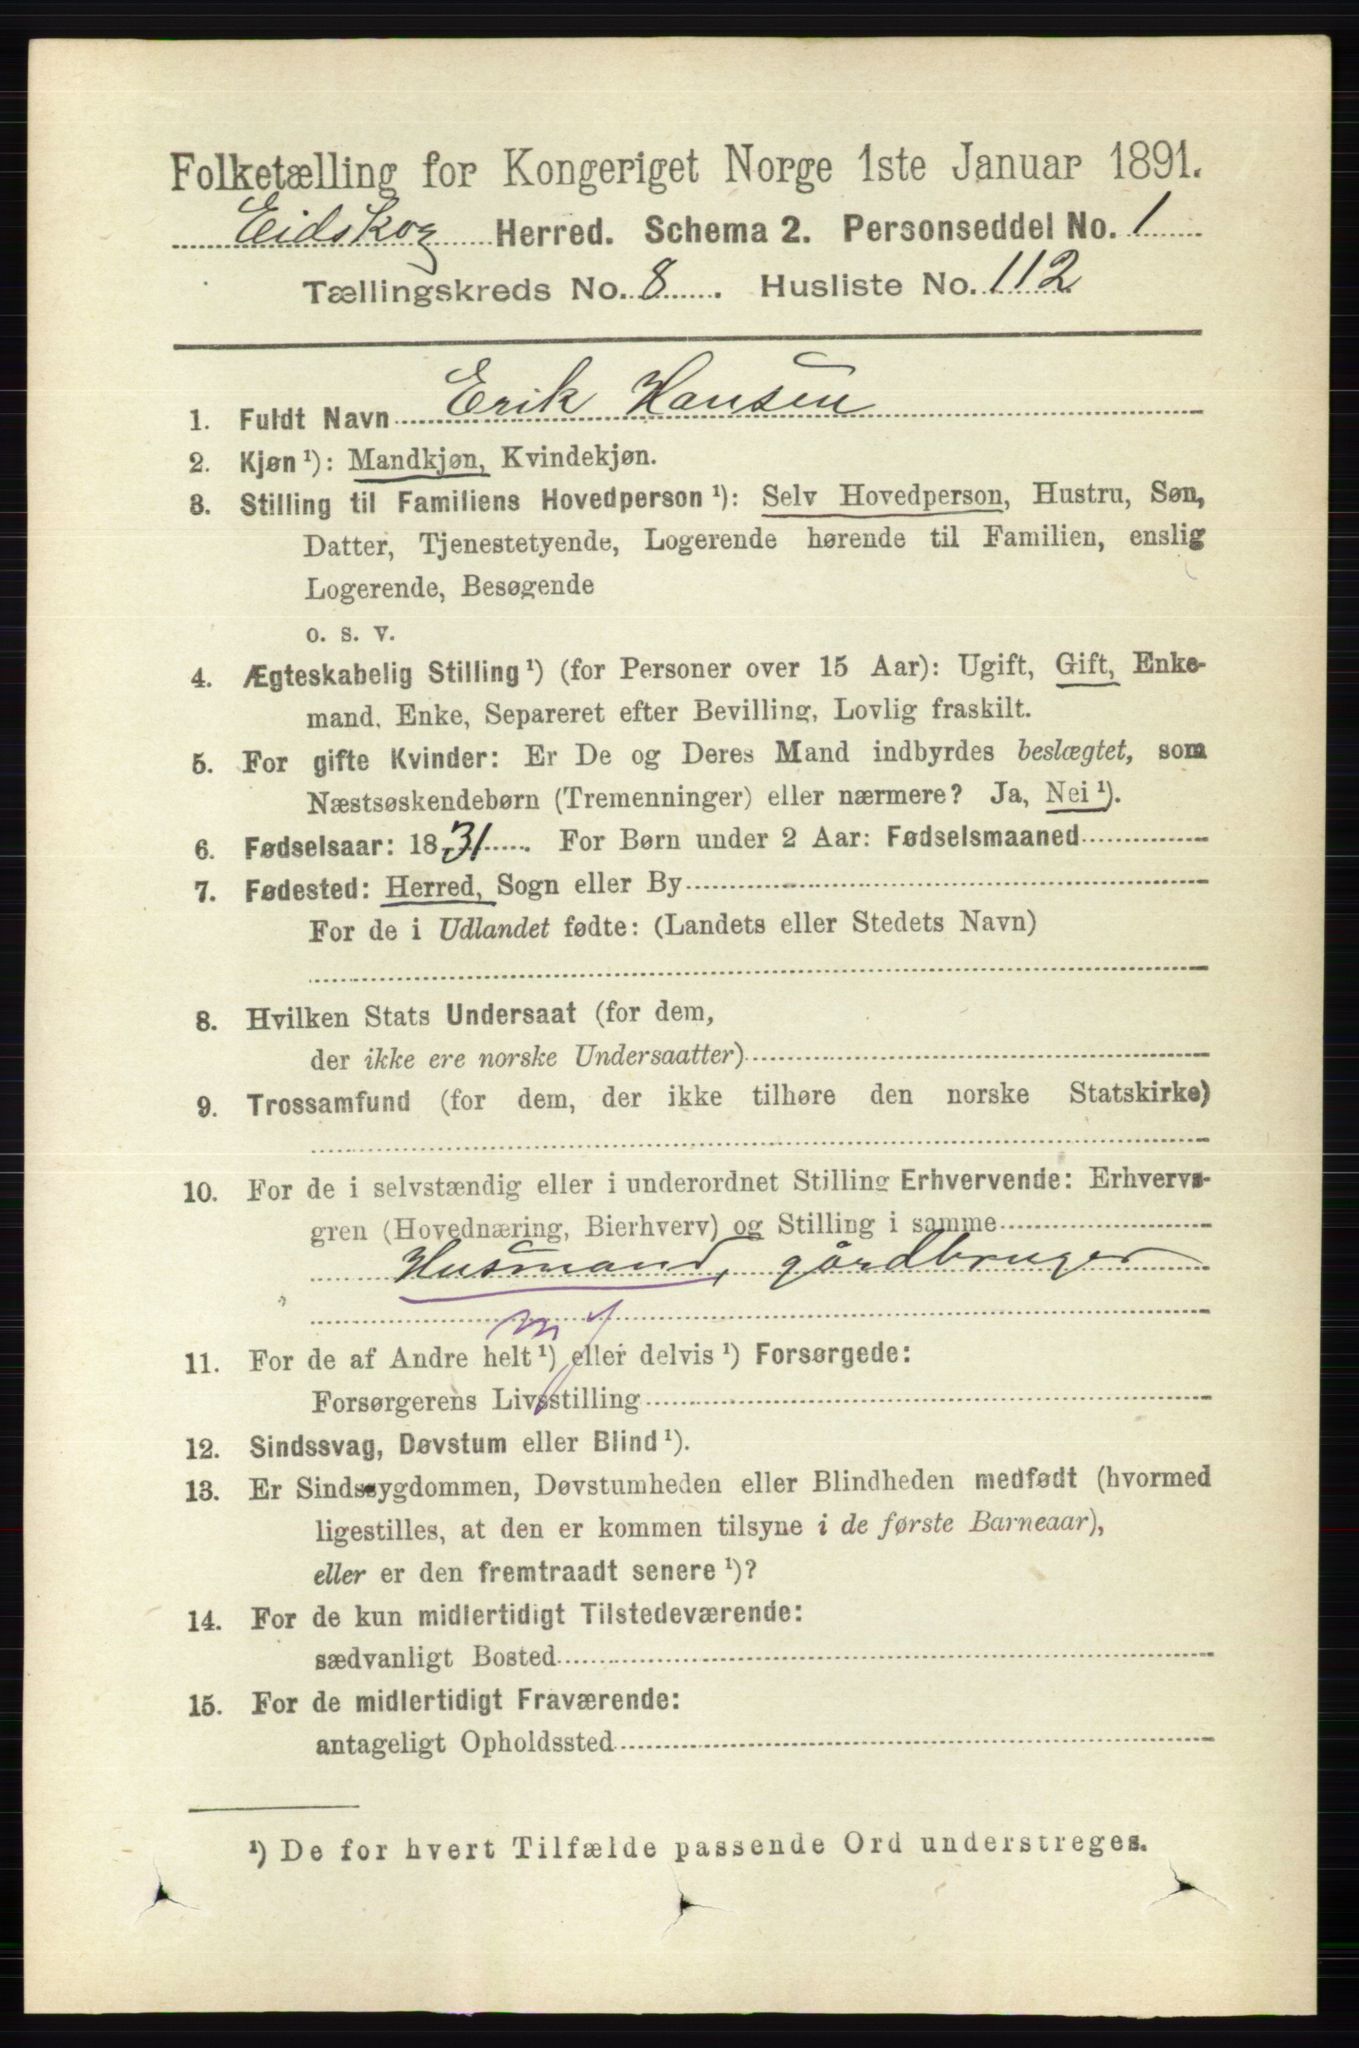 Folketælling for Kongeriget Norge 1ste Januar 1891.
Eidskog Herred. Schema 2. Personseddel No. 1
Tællingskreds No. 8. Husliste No. 112
1. Fuldt Navn Erik Hansen
2. Kjøn ¹): Mandkjøn, Kvindekjøn.
3. Stilling til Familiens Hovedperson ¹): Selv Hovedperson, Hustru, Søn,
Datter, Tjenestetyende, Logerende hørende til Familien, enslig
Logerende, Besøgende
o. s. v.
4. Ægteskabelig Stilling ¹) (for Personer over 15 Aar): Ugift, Gift, Enke-
mand, Enke, Separeret efter Bevilling, Lovlig fraskilt.
5. For gifte Kvinder: Er De og Deres Mand indbyrdes beslægtet, som
Næstsøskendebørn (Tremenninger) eller nærmere? Ja, Nei ¹).
6. Fødselsaar: 1831. For Børn under 2 Aar: Fødselsmaaned
7. Fødested: Herred, Sogn eller By
For de i Udlandet fødte: (Landets eller Stedets Navn)
8. Hvilken Stats Undersaat (for dem,
der ikke ere norske Undersaatter)
9. Trossamfund (for dem, der ikke tilhøre den norske Statskirke)
10. For de i selvstændig eller i underordnet Stilling Erhvervende: Erhvervs-
gren (Hovednæring, Bierhverv) og Stilling i samme
Husmand, gårdbruger
11. For de af Andre helt ¹) eller delvis ¹) Forsørgede:
Forsørgerens Livsstilling
12. Sindssvag, Døvstum eller Blind ¹).
13. Er Sindssygdommen, Døvstumheden eller Blindheden medfødt (hvormed
ligestilles, at den er kommen tilsyne i de første Barneaar),
eller er den fremtraadt senere ¹)?
14. For de kun midlertidigt Tilstedeværende:
sædvanligt Bosted
15. For de midlertidigt Fraværende:
antageligt Opholdssted
¹) De for hvert Tilfælde passende Ord understreges.